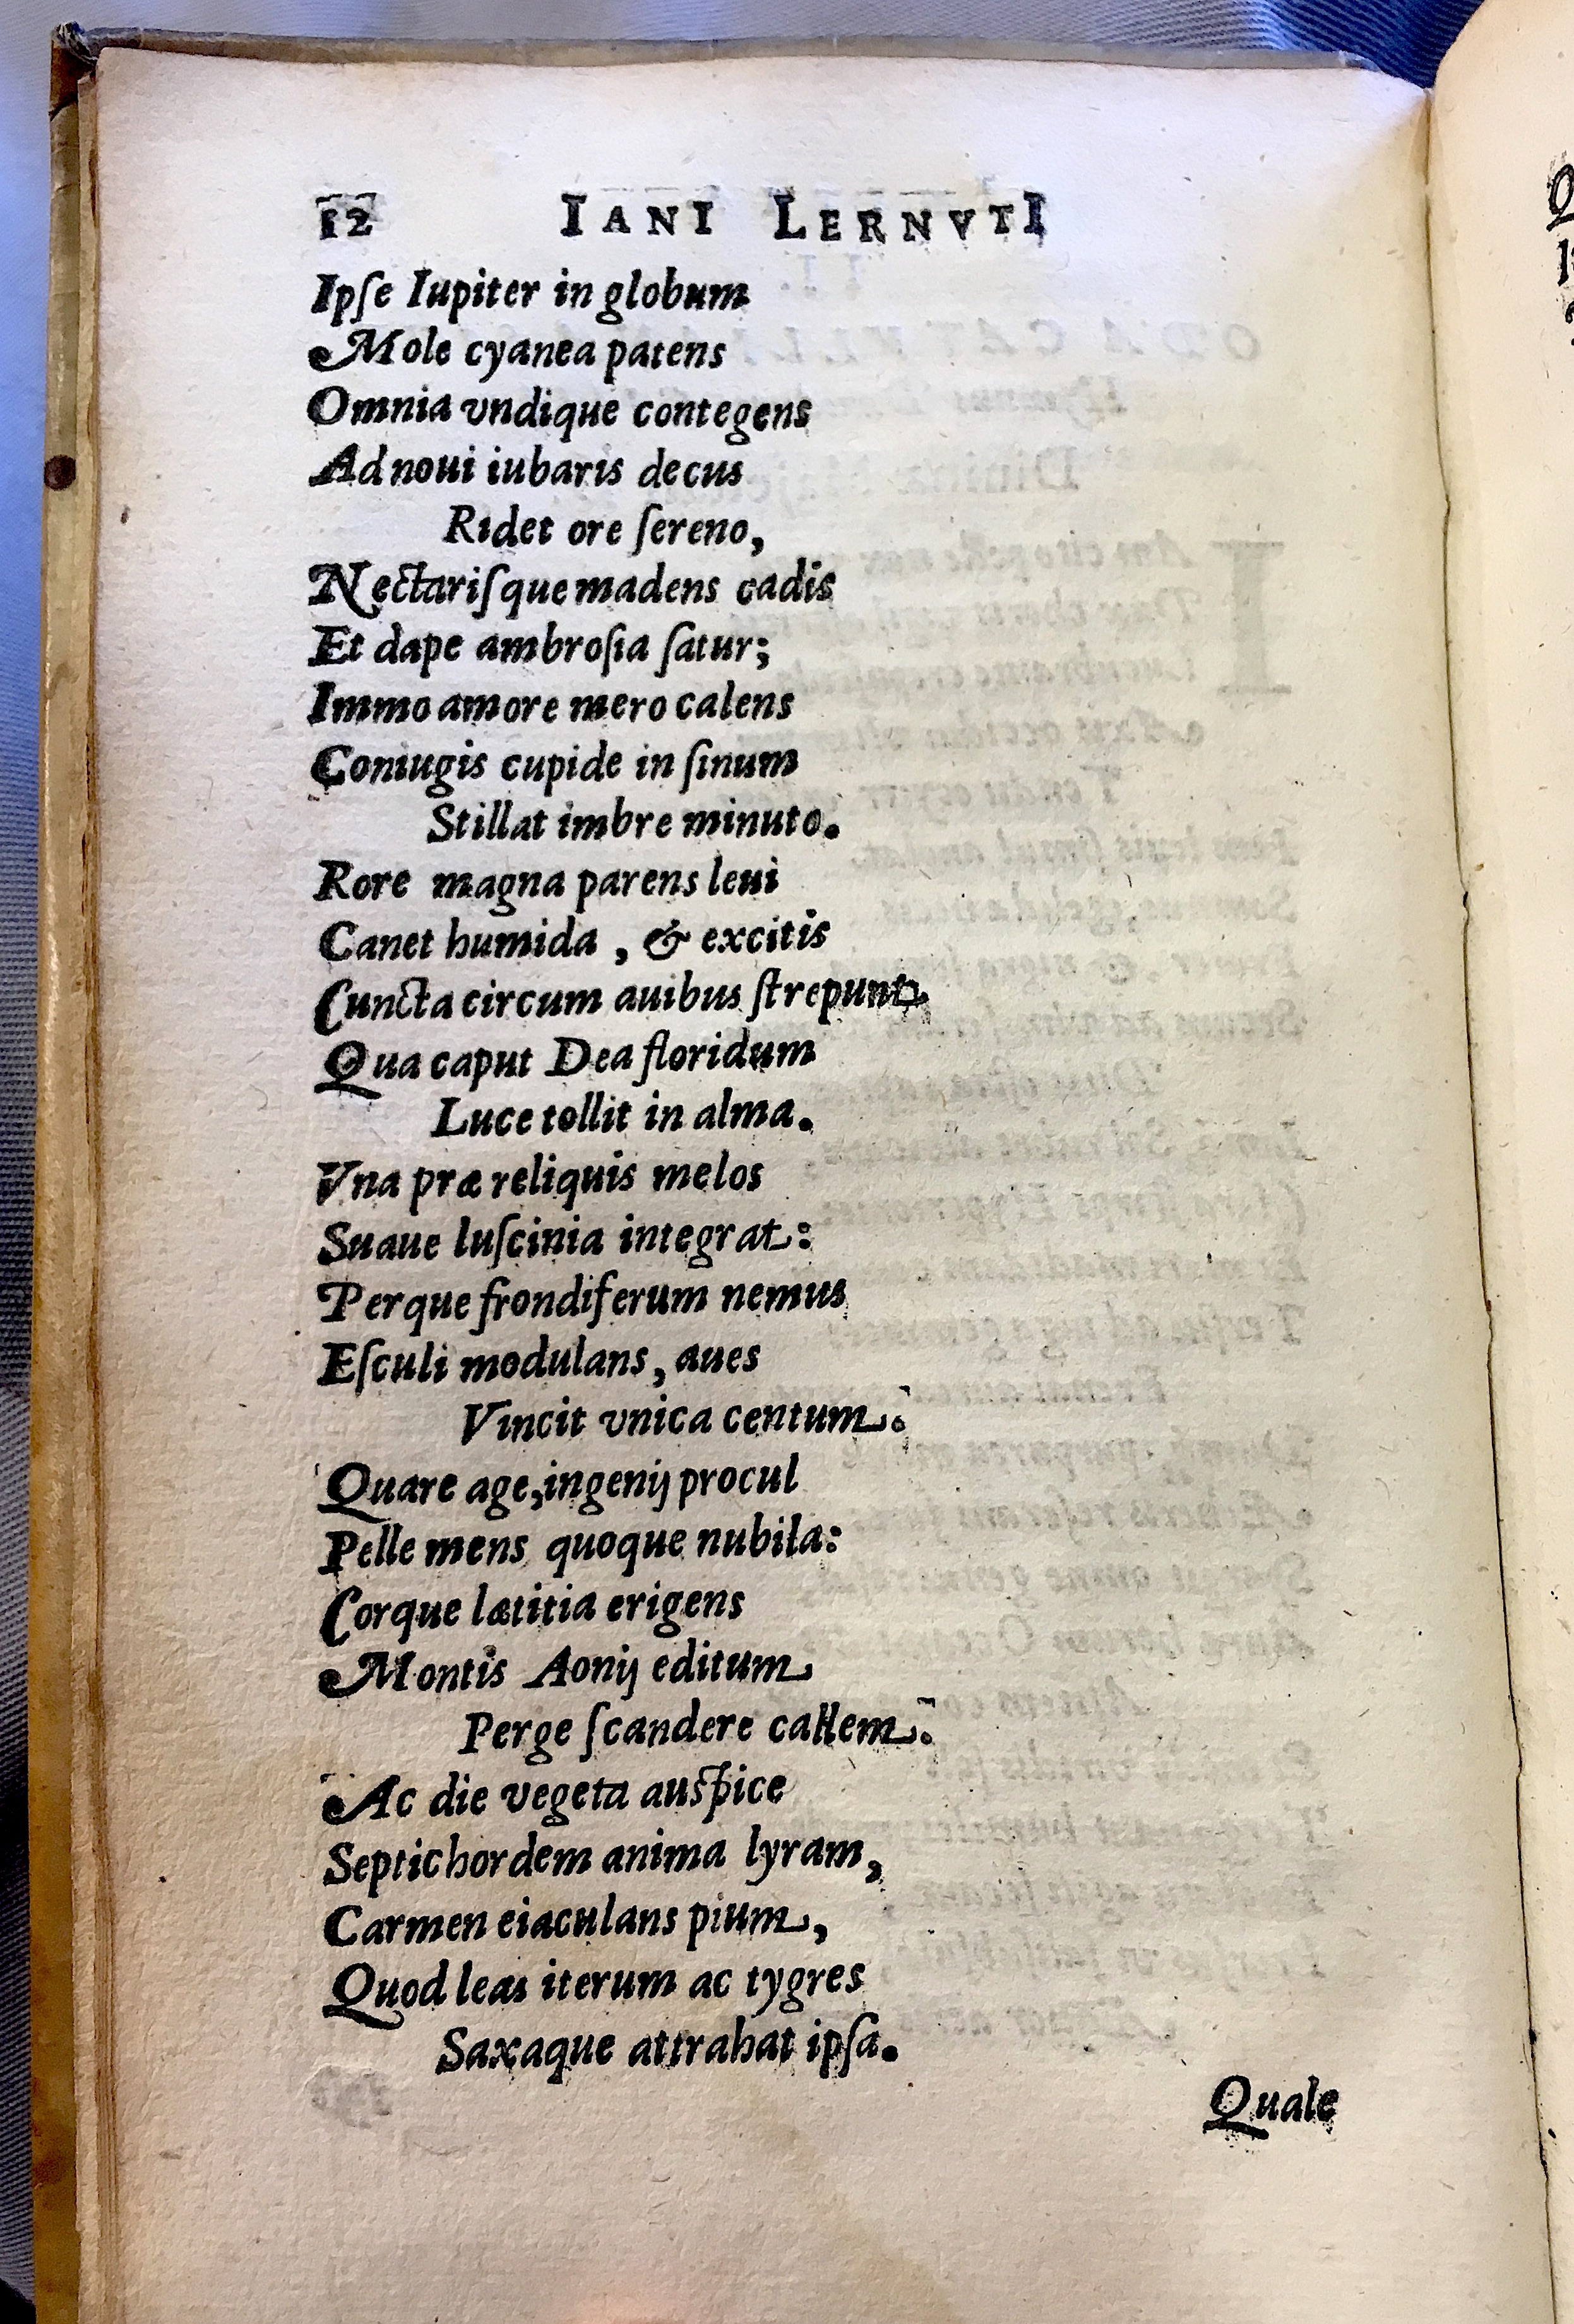 12 IANI LERNVTI
Ipſe Iupiter in globum
Mole cyanea patens
Omnia vndique contegens
Ad noui iubaris decus
Ridet ore ſereno,
Nectariſque madens cadis
Et dape ambroſia ſatur;
Immo amore mero calens
Coniugis cupide in ſinum
Stillat imbre minuto.
Rore magna parens leui
Canet humida, & excitis
Cuncta circum auibus ſtrepunt
Qua caput Dea floridum
Luce tollit in alma.
Vna præ reliquis melos
Suaue luſcinia integrat:
Perque frondiferum nemus
Eſculi modulans, aues
Vincit vnica centum.
Quare age, ingenij procul
Pelle mens quoque nubila:
Corque lætitia erigens
Montis Aonij editum
Perge ſcandere callem.
Ac die vegeta auſpice
Septichordem anima lyram,
Carmen eiaculans pium,
Quod leas iterum ac tygres
Saxaque attrahat ipſa.
Quale